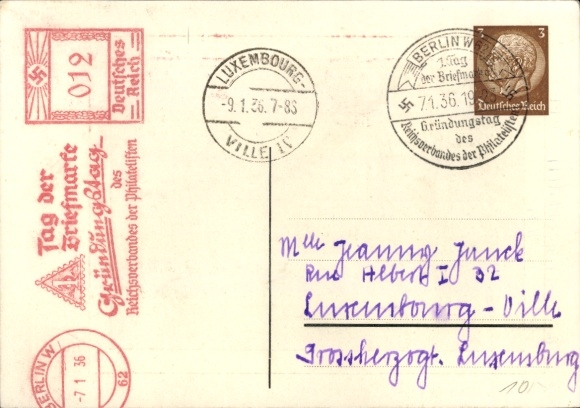 012
Deutsches
Reich
Tag der
Briefmarke
Gründungstag
des
Reichsverbandes der Philatelisten
BERLIN W
-7 1 36
62
LUXEMBOURG-
-9.1.36.7-8
VILLE
BERLIN W
1. Tag
der Briefmarke
7.1.36.19
Gründungstag
des
Reichsverbandes der Philatelisten
3 3
Deutsches Reich
Mlle Jeanny Junck
Rue Albert I 32
Luxembourg - Ville
Grossherzogt. Luxemburg
10.-